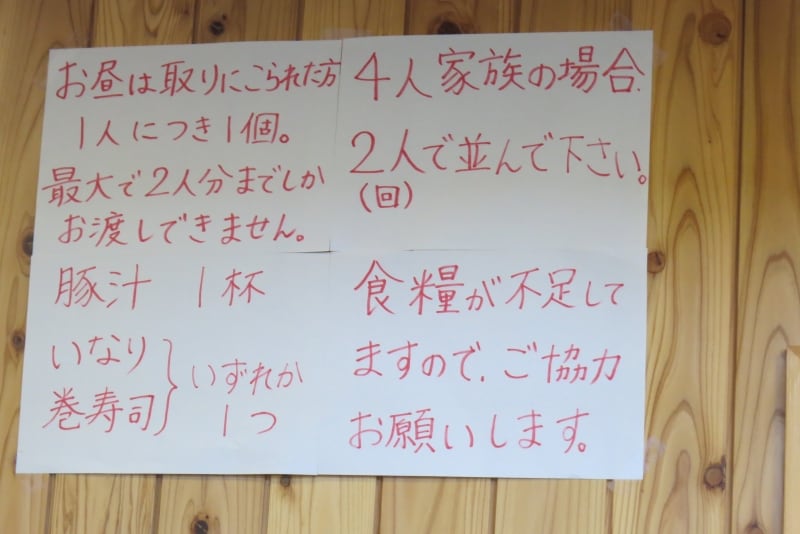 お昼は取りにこられた方
1人につき1個。
最大で2人分までしか
お渡しできません。
4人家族の場合.
2人で並んで下さい。
(回)
豚汁 1杯
いなり
巻寿司
} いずれか
1つ
食糧が不足して
ますので、ご協力
お願いします。